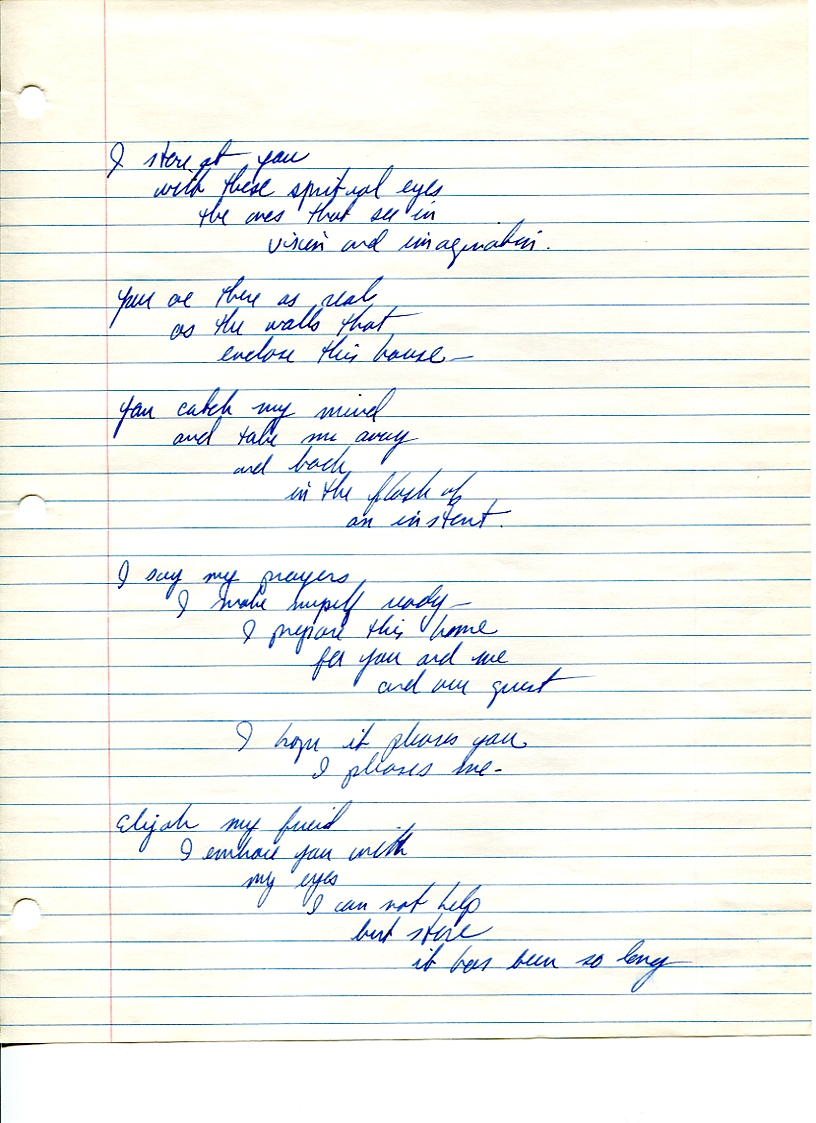 I stare at you
with these spiritual eyes
the ones that see in
vision and imagination.
you are there as real
as the walls that
enclose this house—
you catch my mind
and take me away
and back
in the flash of
an instant.
I say my prayers
I make myself ready—
I prepare this home
for you and me
and our guest
I hope it pleases you
I pleases me-
Elijah my friend
I embrace you with
my eyes
I can not help
but stare
it has been so long